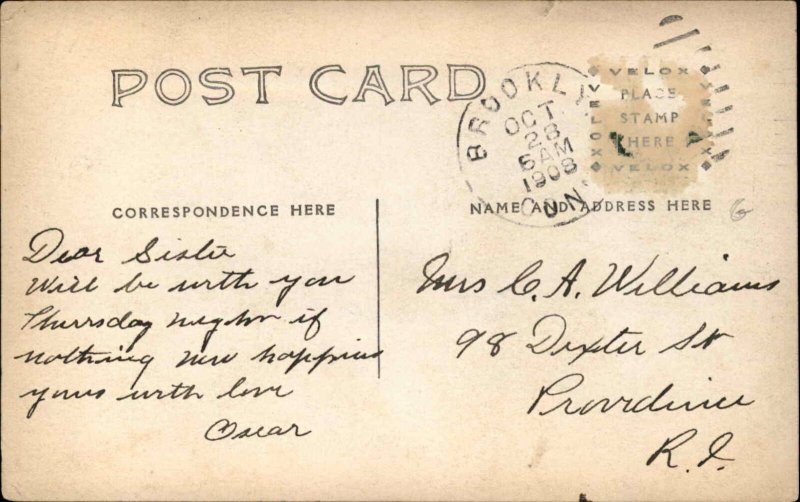 POST CARD
BROOKLYN
CONN.
OCT
28
6 AM
1908
VELOX
PLACE
STAMP
HERE
VELOX
VELOX
VELOX
CORRESPONDENCE HERE
NAME AND ADDRESS HERE
6
Dear Sister
Will be with you
Thursday night if
nothing new happins
yours with love
Oscar
Mrs C. A. Williams
98 Dexter St
Providence
R.I.